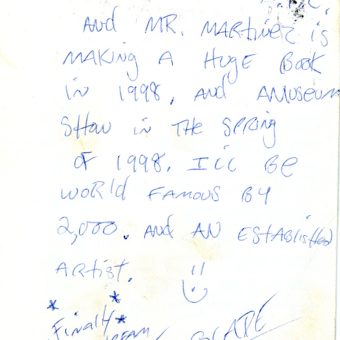 AND MR. MARTINEZ iS
MAKING A HUGE Book
iN 1998, AND A MUSEUM
SHOW iN THE SPRiNG
OF 1998. I'll BE
WORld FAMOUS By
2,000. AND AN ESTABlISHED
ARTiST.
* *
Finally